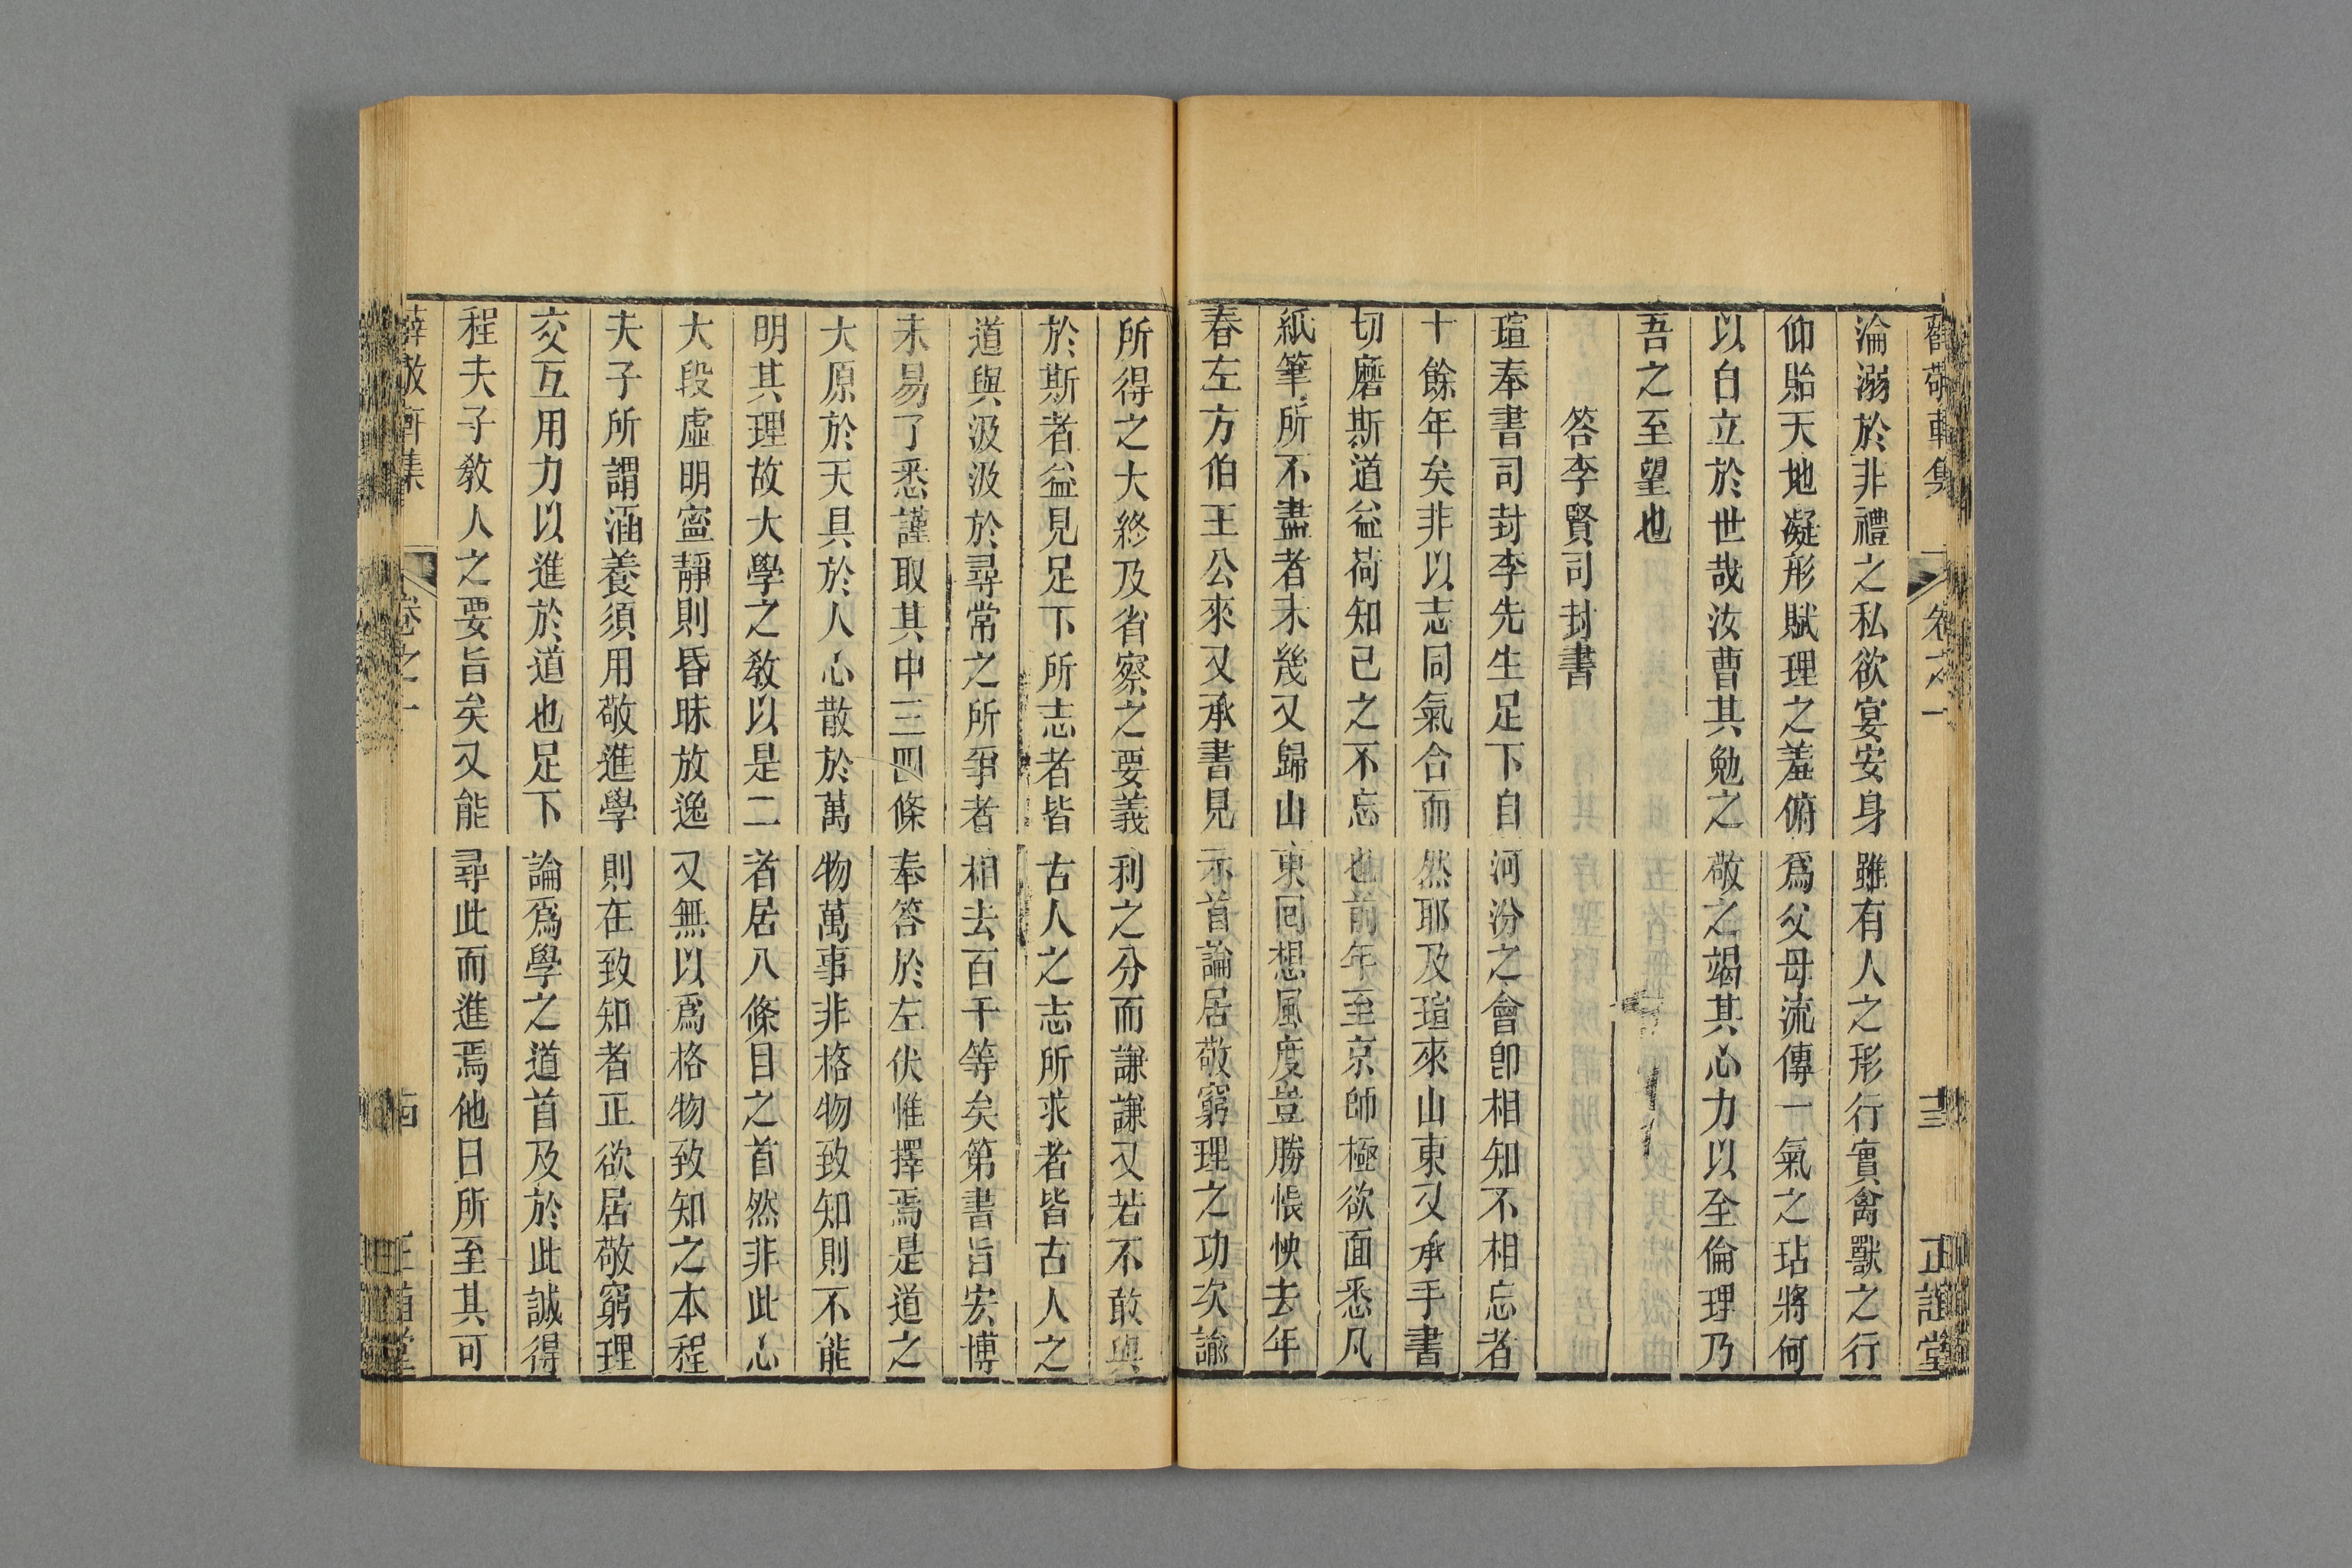 薛敬軒集 卷之一 十三 正誼堂
淪溺於非禮之私欲宴安身雖有人之形行實禽獸之行
仰貽天地凝形賦理之羞俯爲父母流傳一氣之玷將何
以自立於世哉汝曹其勉之敬之竭其心力以至倫理乃
吾之至望也
答李賢司封書
瑄奉書司封李先生足下自河汾之會卽相知不相忘者
十餘年矣非以志同氣合而然耶及瑄來山東又承手書
切磨斯道益荷知己之不忘也前年至京師極欲面悉凡
紙筆所不盡者未幾又歸山東回想風度豈勝悵怏去年
春左方伯王公來又承書見示首論居敬窮理之功次諭
所得之大終及省察之要義利之分而謙謙又若不敢與
於斯者益見足下所志者皆古人之志所求者皆古人之
道與汲汲於尋常之所爭者相去百千等矣第書旨宏博
未易了悉謹取其中三四條奉答於左伏惟擇焉是道之
大原於天具於人心散於萬物萬事非格物致知則不能
明其理故大學之敎以是二者居八條目之首然非此心
大段虛明寧靜則昏昧放逸又無以爲格物致知之本程
夫子所謂涵養須用敬進學則在致知者正欲居敬窮理
交互用力以進於道也足下論爲學之道首及於此誠得
程夫子敎人之要旨矣又能尋此而進焉他日所至其可
薛敬軒集 卷之一 正誼堂